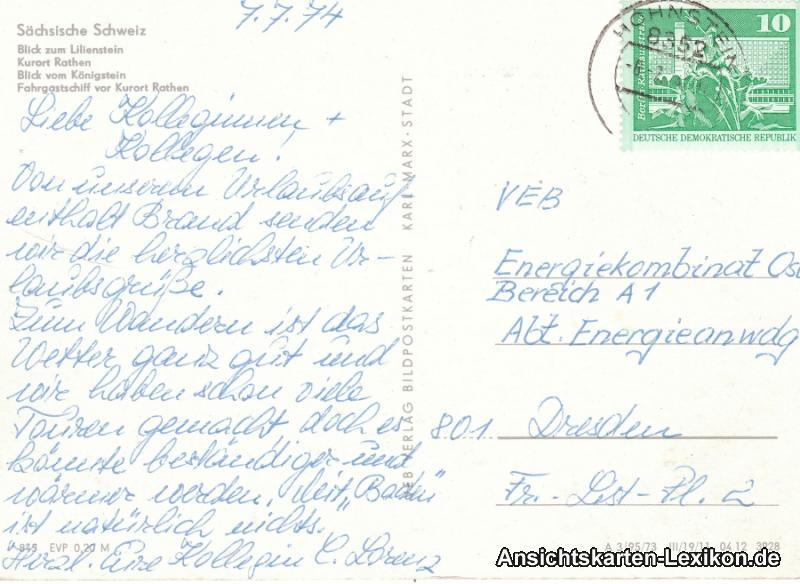 7.7.74
Sächsische Schweiz
Blick zum Lilienstein
Kurort Rathen
Blick vom Königstein
Fahrgastschiff vor Kurort Rathen
Liebe Kolleginnen +
Kollegen!
Von unserem Urlaubsauf
enthalt Brand senden
wir die herzlichsten Ur-
laubsgrüße.
Zum Wandern ist das
Wetter ganz gut und
wir haben schon viele
Touren gemacht doch es
könnte beständiger und
wärmer werden, Mit "Baden"
ist natürlich nichts.
Herzl. Eure Kollegin C. Lorenz
845 EVP 0,20 M
VEB VERLAG BILDPOSTKARTEN KARL-MARX-STADT
HOHNSTEIN
8352
10
Berlin, Rathausstraße
DEUTSCHE DEMOKRATISCHE REPUBLIK
VEB
Energiekombinat Ost
Bereich A1
Abt. Energieanwdg
801 Dresden
Fr.-List-Pl. 2
A 3/95/73 III/19/11 0612 3928
Ansichtskarten-Lexikon.de